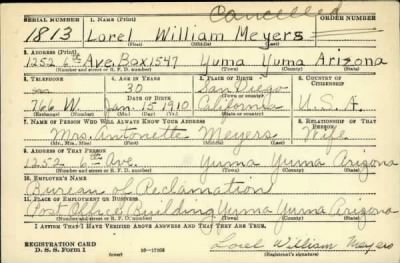 Cancelled
SERIAL NUMBER 1. NAME (Print) ORDER NUMBER
1813 Lorel William Meyers
(First) (Middle) (Last)
2. ADDRESS (Print)
1252 6th Ave, Box 1547 Yuma Yuma Arizona
(Number and street or R. F. D. number) (Town) (County) (State)
3. TELEPHONE 4. AGE IN YEARS 5. PLACE OF BIRTH 6. COUNTRY OF CITIZENSHIP
30 San Diego
DATE OF BIRTH (Town or county)
766 W. Jan. 15 1910 California U. S. A.
(Exchange) (Number) (Mo.) (Day) (Yr.) (State or country)
7. NAME OF PERSON WHO WILL ALWAYS KNOW YOUR ADDRESS 8. RELATIONSHIP OF THAT PERSON
Mrs. Antonette Meyers Wife
(Mr., Mrs., Miss) (First) (Middle) (Last)
9. ADDRESS OF THAT PERSON
1252 6th Ave. Yuma Yuma Arizona
(Number and street or R. F. D. number) (Town) (County) (State)
10. EMPLOYER'S NAME
Bureau of Reclamation
11. PLACE OF EMPLOYMENT OR BUSINESS
Post Office Building Yuma Yuma Arizona
(Number and street or R. F. D. number) (Town) (County) (State)
I AFFIRM THAT I HAVE VERIFIED ABOVE ANSWERS AND THAT THEY ARE TRUE.
REGISTRATION CARD
D. S. S. Form 1 (over) Lorel William Meyers